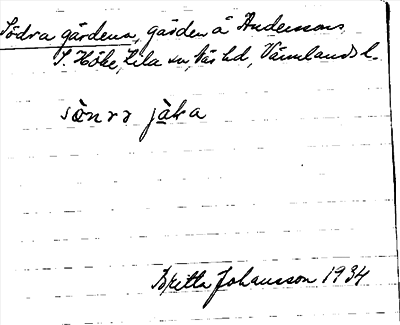 Södra gårdena, gården å Anderssons,
S. Höke, Lila sn, Näs hd, Värmlands l.
sònrɘ jàka
Britta Johansson 1934